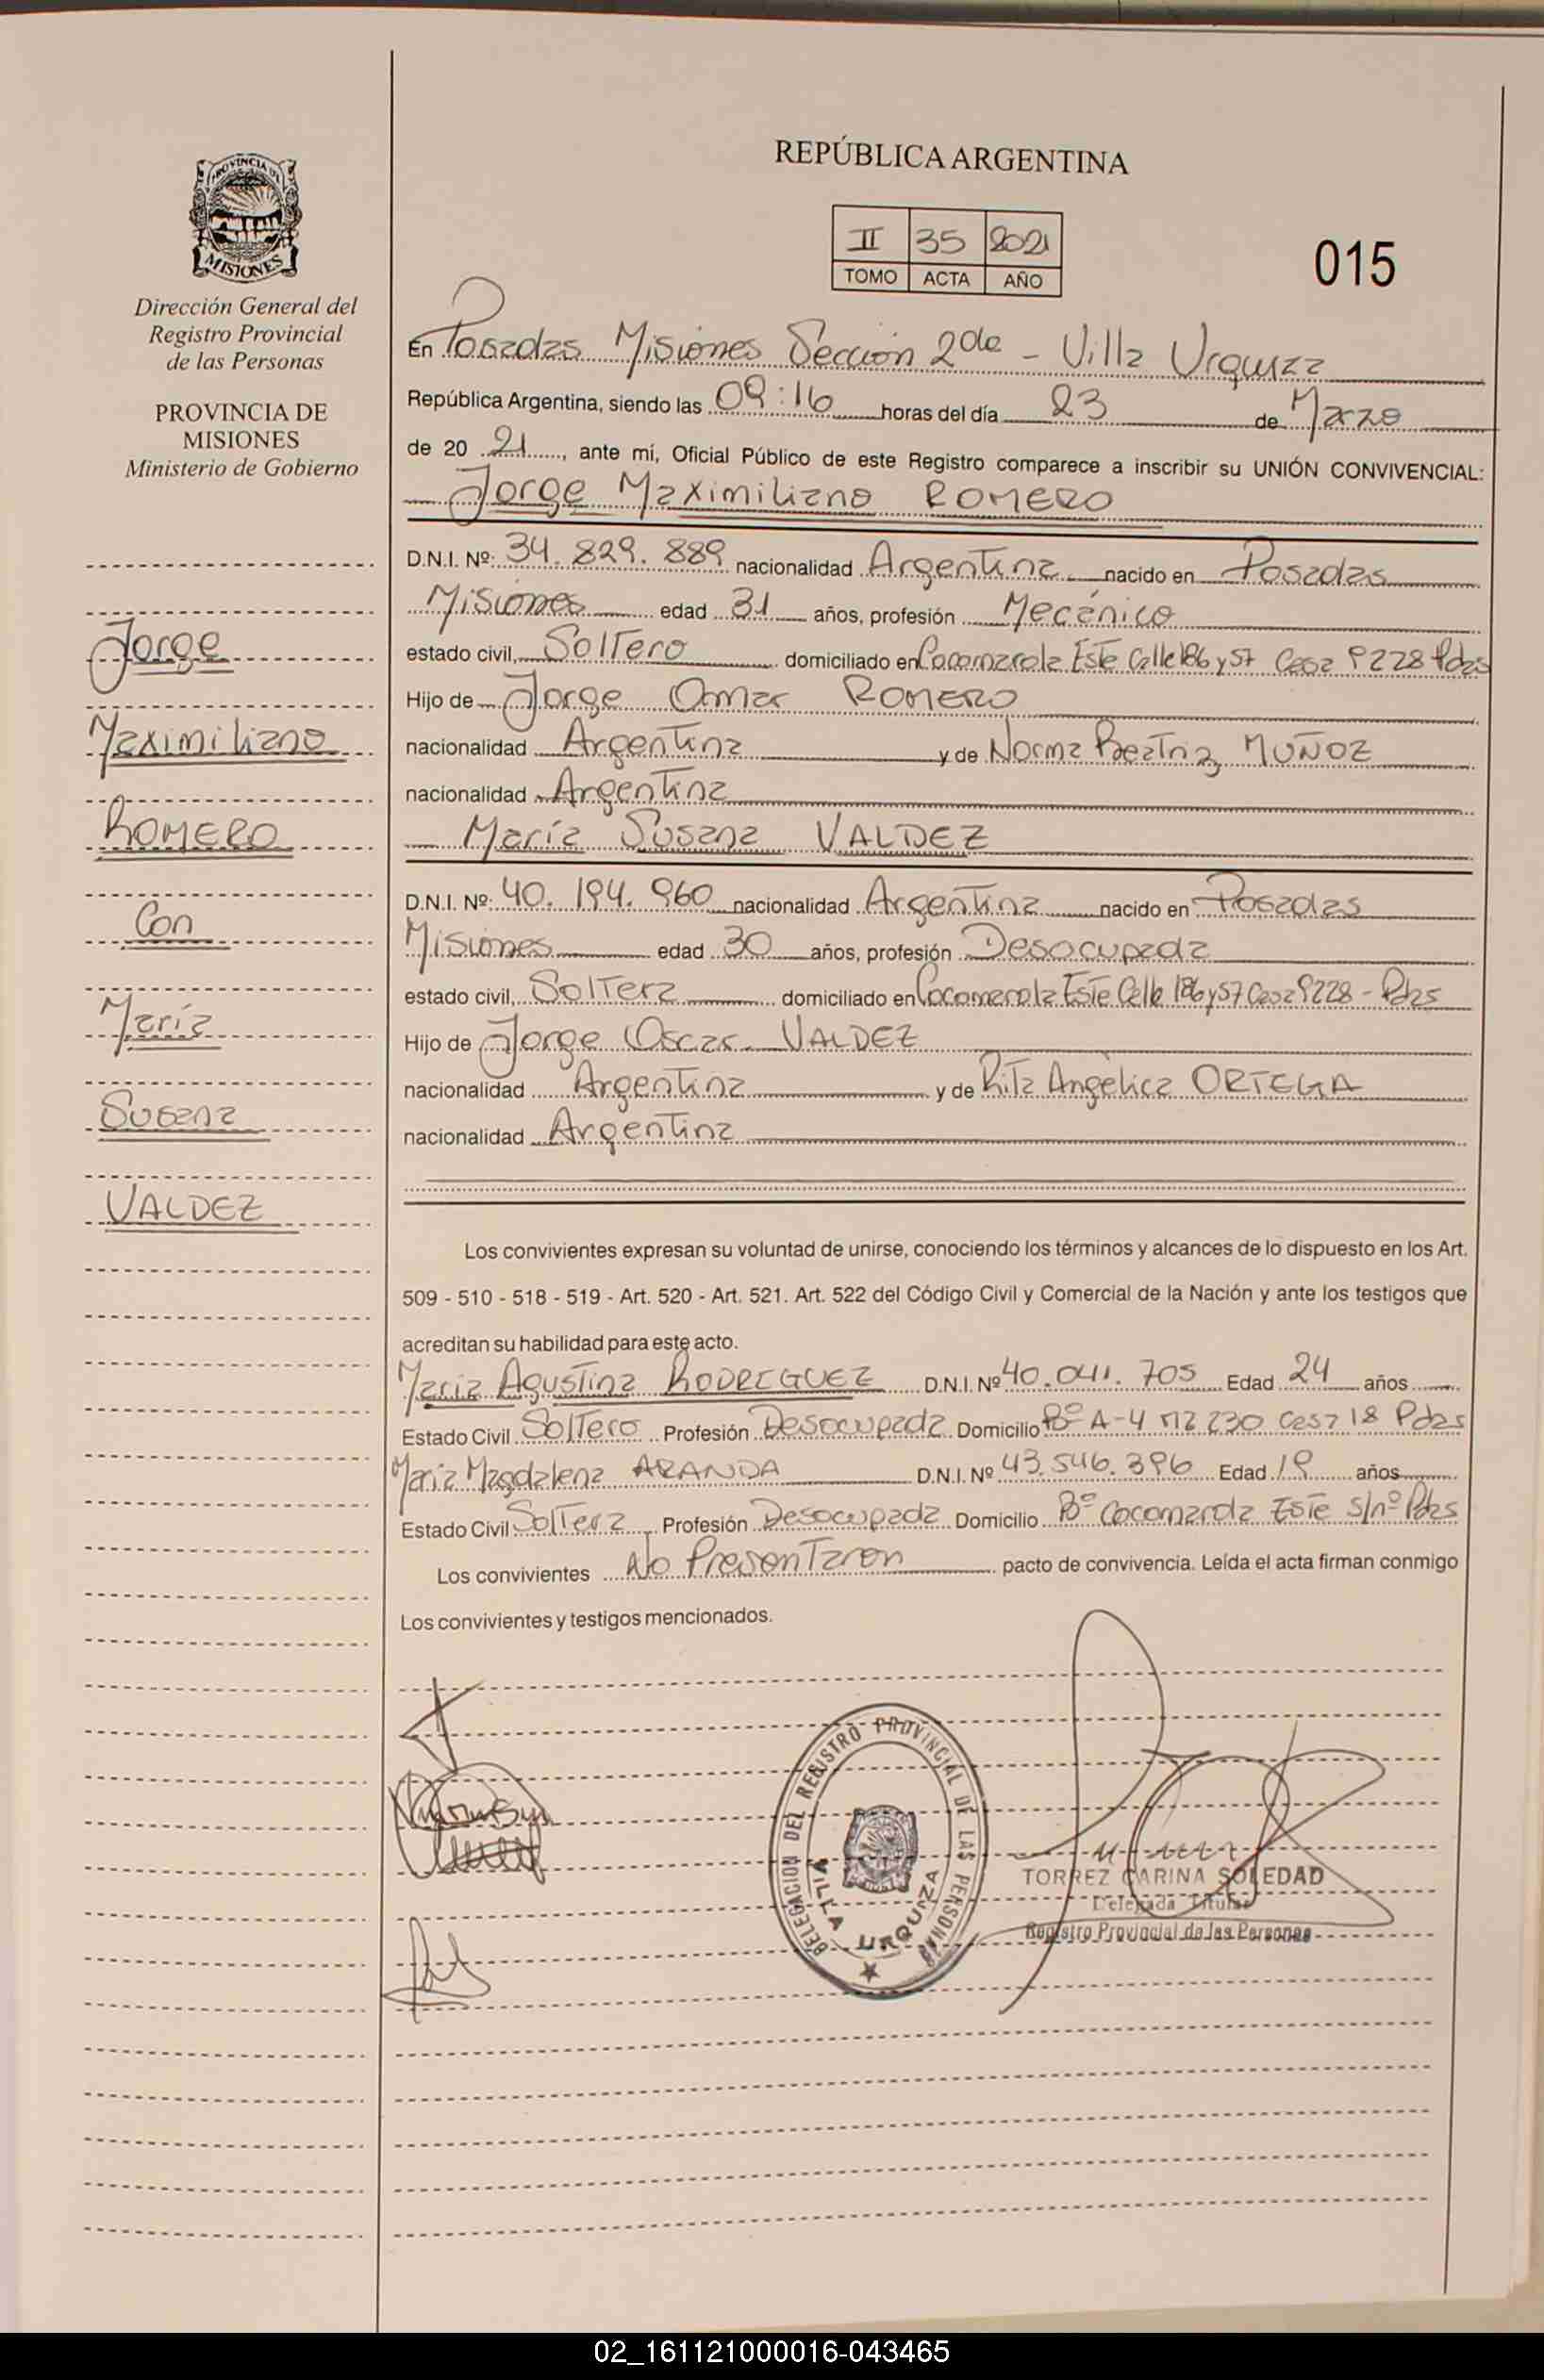 PROVINCIA DE
MISIONES
Dirección General del
Registro Provincial
de las Personas
PROVINCIA DE
MISIONES
Ministerio de Gobierno
Jorge
Maximiliano
ROMERO
Con
María
Susana
VALDEZ
REPÚBLICA ARGENTINA
II 35 2021
TOMO ACTA AÑO
015
En Posadas Misiones Sección 2da - Villa Urquiza
República Argentina, siendo las 09:16 horas del día 23 de Marzo
de 20 21, ante mí, Oficial Público de este Registro comparece a inscribir su UNIÓN CONVIVENCIAL:
Jorge Maximiliano ROMERO
D.N.I. Nº: 34.829.889 nacionalidad Argentina nacido en Posadas
Misiones edad 31 años, profesión Mecánico
estado civil, Soltero domiciliado en Cocomarola Este Calle 186 y 57 Casa 9228 Pdas
Hijo de Jorge Omar ROMERO
nacionalidad Argentina y de Norma Beatriz MUÑOZ
nacionalidad Argentina
María Susana VALDEZ
D.N.I. Nº: 40.194.960 nacionalidad Argentina nacido en Posadas
Misiones edad 30 años, profesión Desocupada
estado civil, Soltera domiciliado en Cocomarola Este Calle 186 y 57 Casa 9228 - Pdas
Hijo de Jorge Oscar VALDEZ
nacionalidad Argentina y de Rita Angélica ORTEGA
nacionalidad Argentina
Los convivientes expresan su voluntad de unirse, conociendo los términos y alcances de lo dispuesto en los Art.
509 - 510 - 518 - 519 - Art. 520 - Art. 521. Art. 522 del Código Civil y Comercial de la Nación y ante los testigos que
acreditan su habilidad para este acto.
Maria Agustina RODRIGUEZ D.N.I. Nº 40.041.705 Edad 24 años
Estado Civil Soltero Profesión Desocupada Domicilio Bº A-4 mz 230 casa 18 Pdas
Maria Magdalena ARANDA D.N.I. Nº 43.546.396 Edad 19 años
Estado Civil Soltera Profesión Desocupada Domicilio Bº Cocomarola Este s/nº Pdas
Los convivientes No Presentaron pacto de convivencia. Leída el acta firman conmigo
Los convivientes y testigos mencionados.
DELEGACION DEL REGISTRO PROVINCIAL DE LAS PERSONAS
VILLA URQUIZA
TORREZ CARINA SOLEDAD
Delegada Titular
Registro Provincial de las Personas
02_161121000016-043465